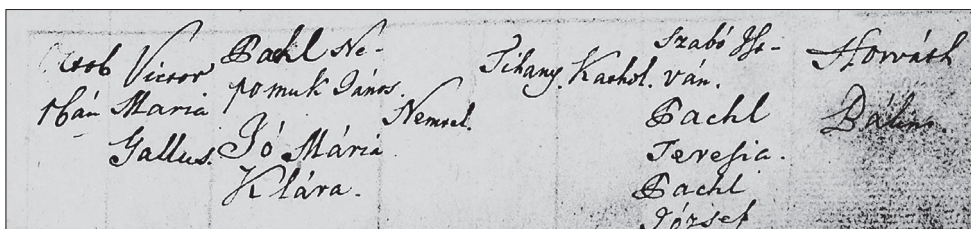 Octob
16án
Victor
Maria
Gallus.
Pachl Ne-
pomuk János.
Jó Mária
Klára.
Nemsel.
Tihany.
Kathol.
Szabó Ist-
ván.
Pachl
Teresia.
Pachl
József
Horváth
Bálint.